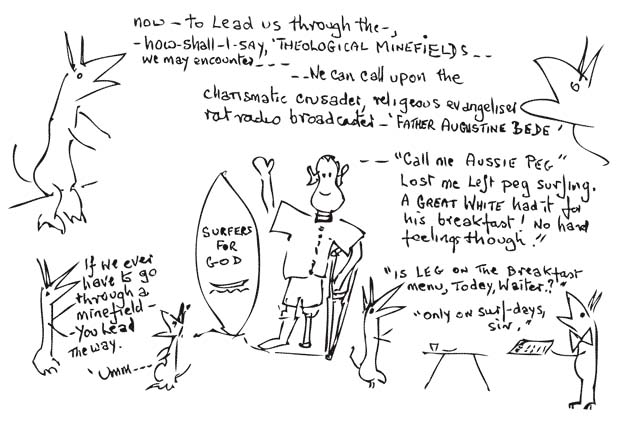 now - to Lead us through the -,
- how-shall-I-say, 'THEOLOGICAL MINEFIELDS --
we may encounter ----
-- We can call upon the
charismatic crusader, religeous evangeliser
rat radio broadcaster - 'FATHER AUGUSTINE BEDE'
-- "Call me AUSSIE PEG"
Lost me Left peg surfing.
A GREAT WHITE had it for
his breakfast! No hard
feelings though."
SURFERS
FOR
GOD
If we ever
have to go
through a
minefield -
- You Lead
The way.
'Umm ---
"IS LEG ON The Breakfast
menu, Today, Waiter.?"
"only on surf-days,
sir,"